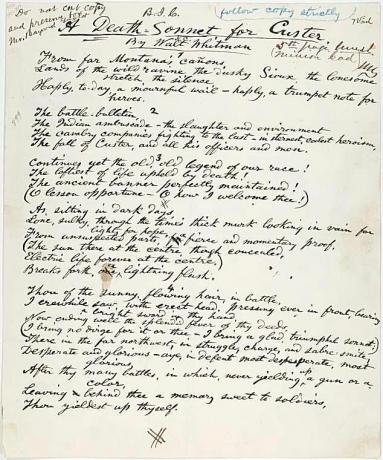 Do not cut copy
and preserve
B. I. C.
(follow copy strictly)
A Death-Sonnet for Custer
By Walt Whitman
5th page
From far Montana's cañons,
Lands of the wild ravine, the dusky Sioux, the lonesome
stretch, the silence,
Haply, to-day, a mournful wail – haply, a trumpet note for
heroes.
2
The battle-bulletin,
The Indian ambuscade – the slaughter and environment
The cavalry companies fighting to the last – in sternest, coolest heroism,
The fall of Custer, and all his officers and men.
3
Continues yet the old, old legend of our race!
The loftiest of life upheld by death!
The ancient banner perfectly maintained!
(O lesson opportune – O how I welcome thee!)
As, sitting in dark days,
Lone, sulky, through the time's thick murk looking in vain for
light, for hope,
From unsuspected parts, a fierce and momentary proof,
(The sun there at the centre, though concealed,
Electric life forever at the centre,)
Breaks forth, a lightning flash.
4
Thou of the sunny, flowing hair, in battle,
I erewhile saw, with erect head, pressing ever in front, bearing
a bright sword in thy hand,
Now ending well the splendid fever of thy deeds,
(I bring no dirge for it or thee – I bring a glad triumphal sonnet;)
There in the far northwest, in struggle, charge, and sabre-smite,
Desperate and glorious – aye, in defeat most desperate, most
glorious,
After thy many battles, in which, never yielding up a gun or a
color,
Leaving behind thee a memory sweet to soldiers,
Thou yieldest up thyself.